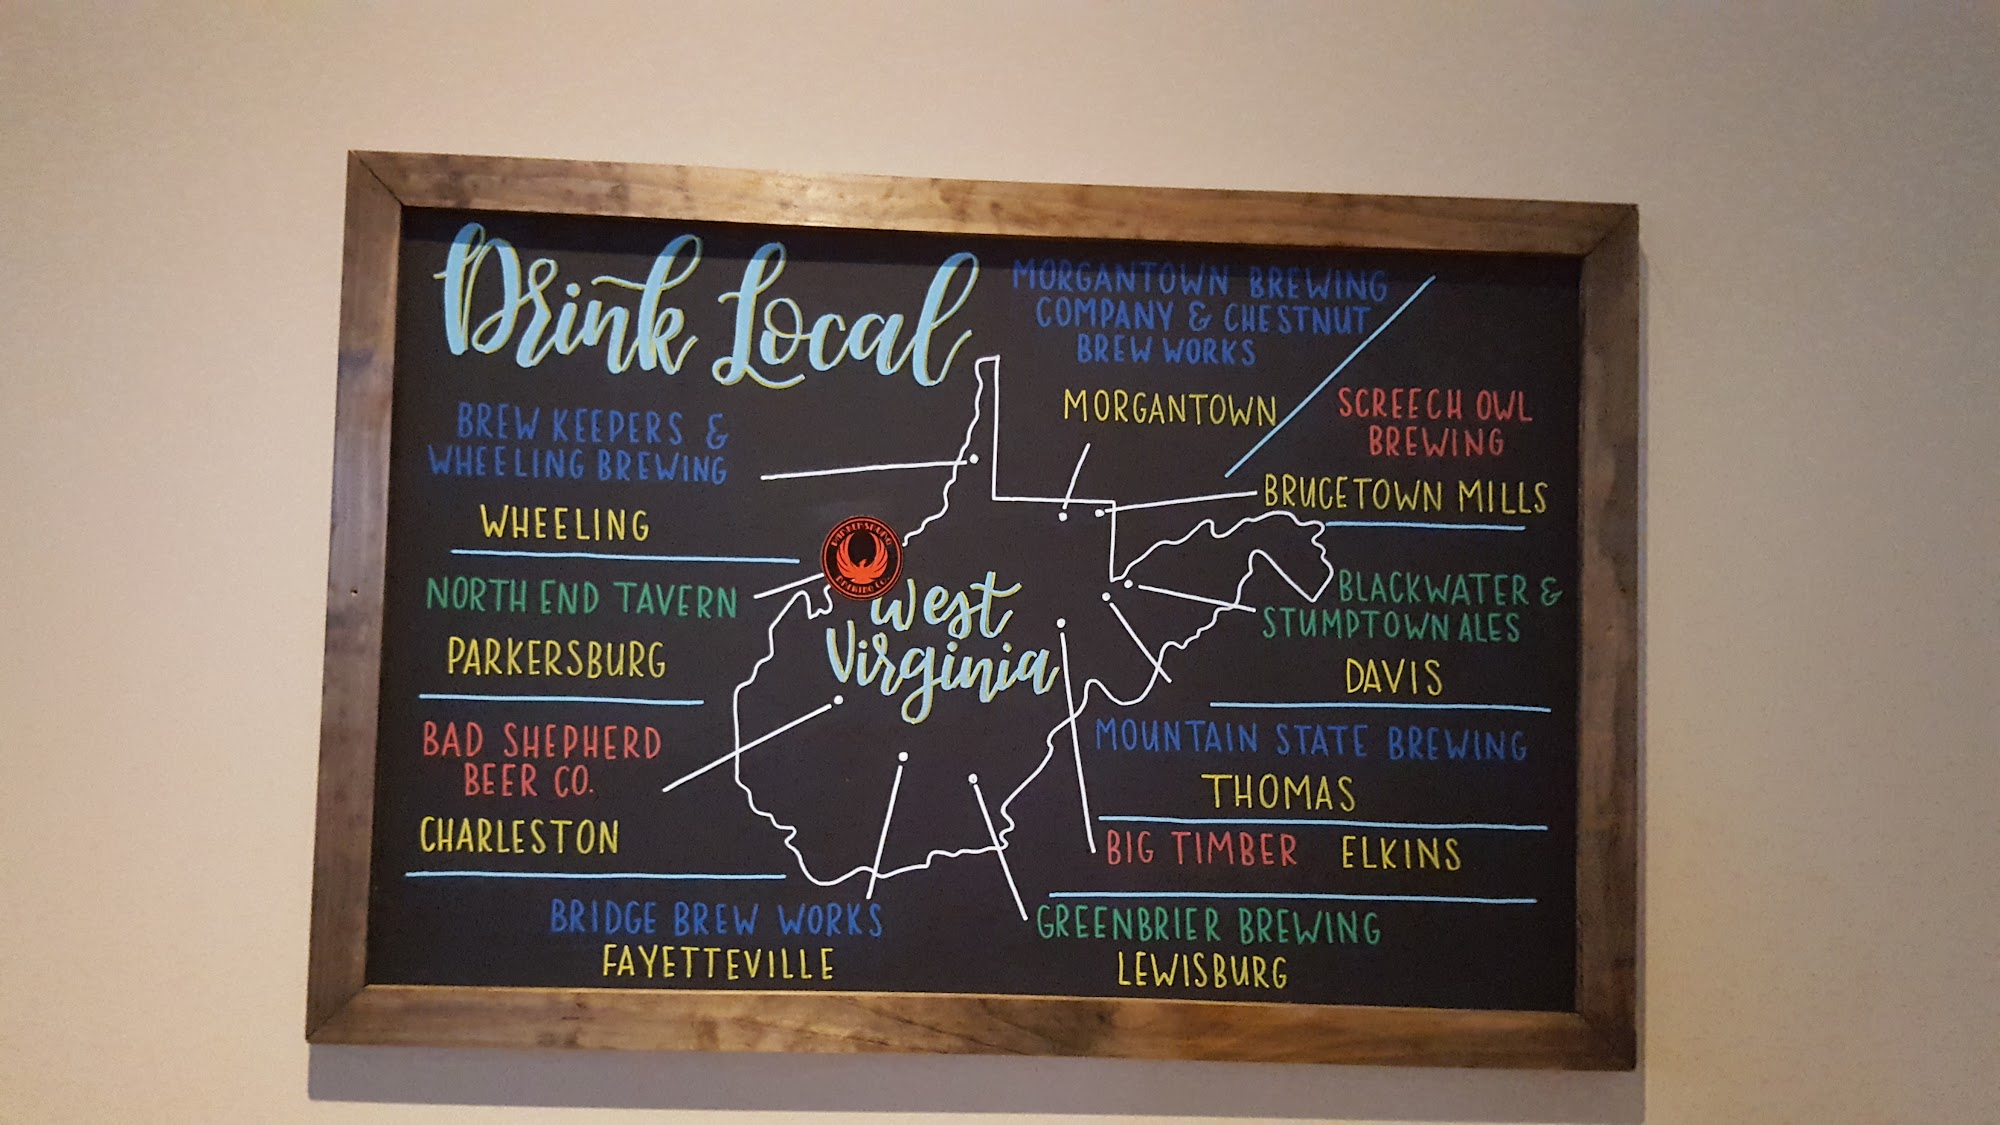 Drink Local
MORGANTOWN BREWING
COMPANY & CHESTNUT
BREW WORKS
MORGANTOWN
SCREECH OWL
BREWING
BRUCETOWN MILLS
BREW KEEPERS &
WHEELING BREWING
WHEELING
NORTH END TAVERN
PARKERSBURG
PARKERSBURG
BREWING CO.
West
Virginia
BLACKWATER &
STUMPTOWN ALES
DAVIS
BAD SHEPHERD
BEER CO.
CHARLESTON
MOUNTAIN STATE BREWING
THOMAS
BIG TIMBER ELKINS
BRIDGE BREW WORKS
FAYETTEVILLE
GREENBRIER BREWING
LEWISBURG